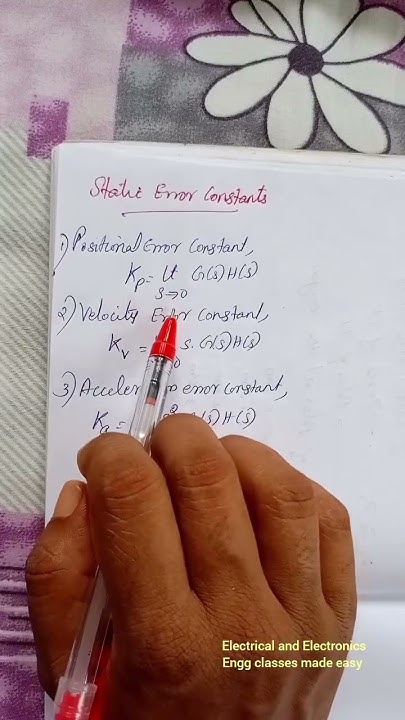 Static Error Constants
1) Positional Error Constant,
Kp = Lt G(s)H(s)
s→0
2) Velocity Error Constant,
Kv = s. G(s)H(s)
0
3) error constant,
Ka = G(s)H(s)
Electrical and Electronics
Engg classes made easy